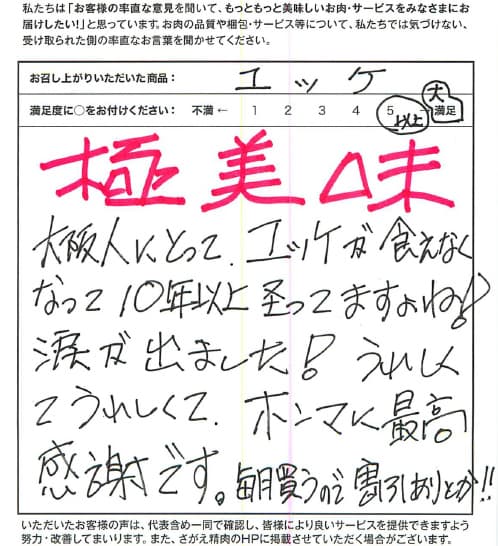 私たちは「お客様の率直な意見を聞いて、もっともっと美味しいお肉・サービスをみなさまにお
届けしたい！」と思っています。お肉の品質や梱包・サービス等について、私たちでは気づけない、
受け取られた側の率直なお言葉を聞かせてください。
お召し上がりいただいた商品： ユッケ
満足度に○をお付けください： 不満 ← 1 2 3 4 5 以上 → 大満足
極美味
大阪人にとって、ユッケが食えなく
なって10年以上経ってますよね！
涙が出ました！うれしく
てうれしくて、ホンマに最高
感謝です。毎月買うので割引ありとか!!
いただいたお客様の声は、代表含め一同で確認し、皆様により良いサービスを提供できますよう
努力・改善してまいります。また、さがえ精肉のHPに掲載させていただく場合がございます。